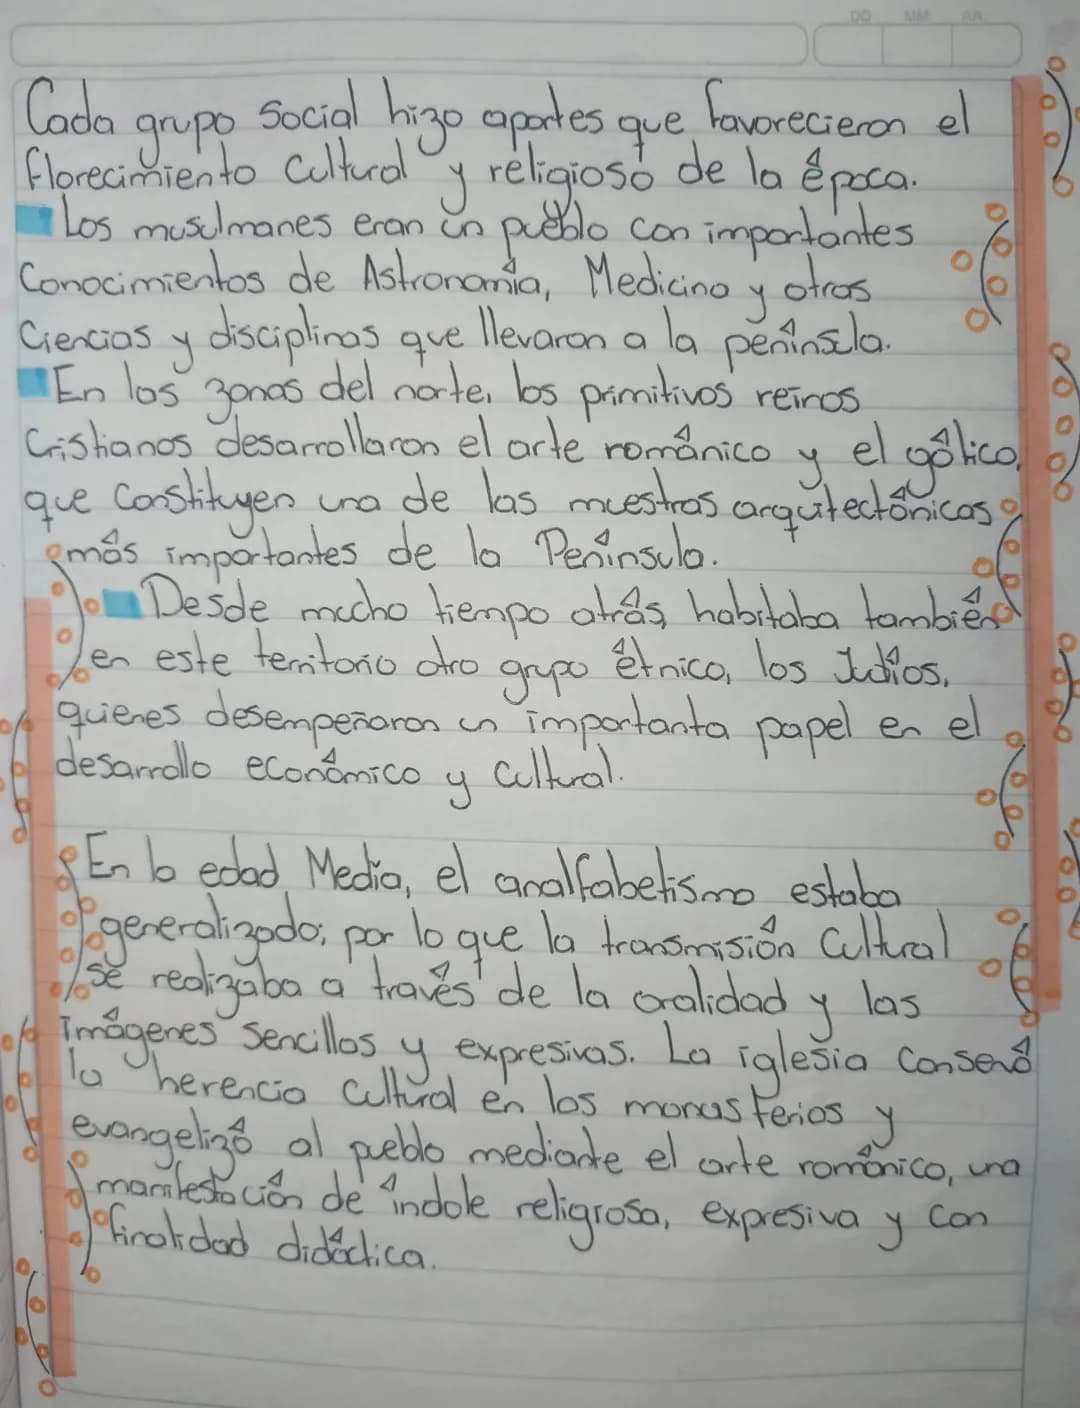 DD MM AA
Cada grupo Social hizo aportes que favorecieron el
florecimiento Cultural y religioso de la época.
Los musulmanes eran un pueblo con importantes
Conocimientos de Astronomía, Medicina y otras
Ciencias y disciplinas que llevaron a la península.
En las zonas del norte, los primitivos reinos
Cristianos desarrollaron el arte románico y el gótico,
que Constituyen una de las muestras arquitectónicas
más importantes de la Península.
Desde mucho tiempo atrás, habitaba también
en este territorio otro grupo étnico, los Judíos,
quienes desempeñaron un importanta papel en el
desarrollo económico y Cultural.
En la edad Media, el analfabetismo estaba
generalizado; por lo que la transmisión Cultural
se realizaba a través de la oralidad y las
Imágenes Sencillas y expresivas. La iglesia Conservó
la herencia Cultural en los monasterios y
evangelizó al pueblo mediante el arte románico, una
manifestación de índole religiosa, expresiva y Con
finalidad didáctica.